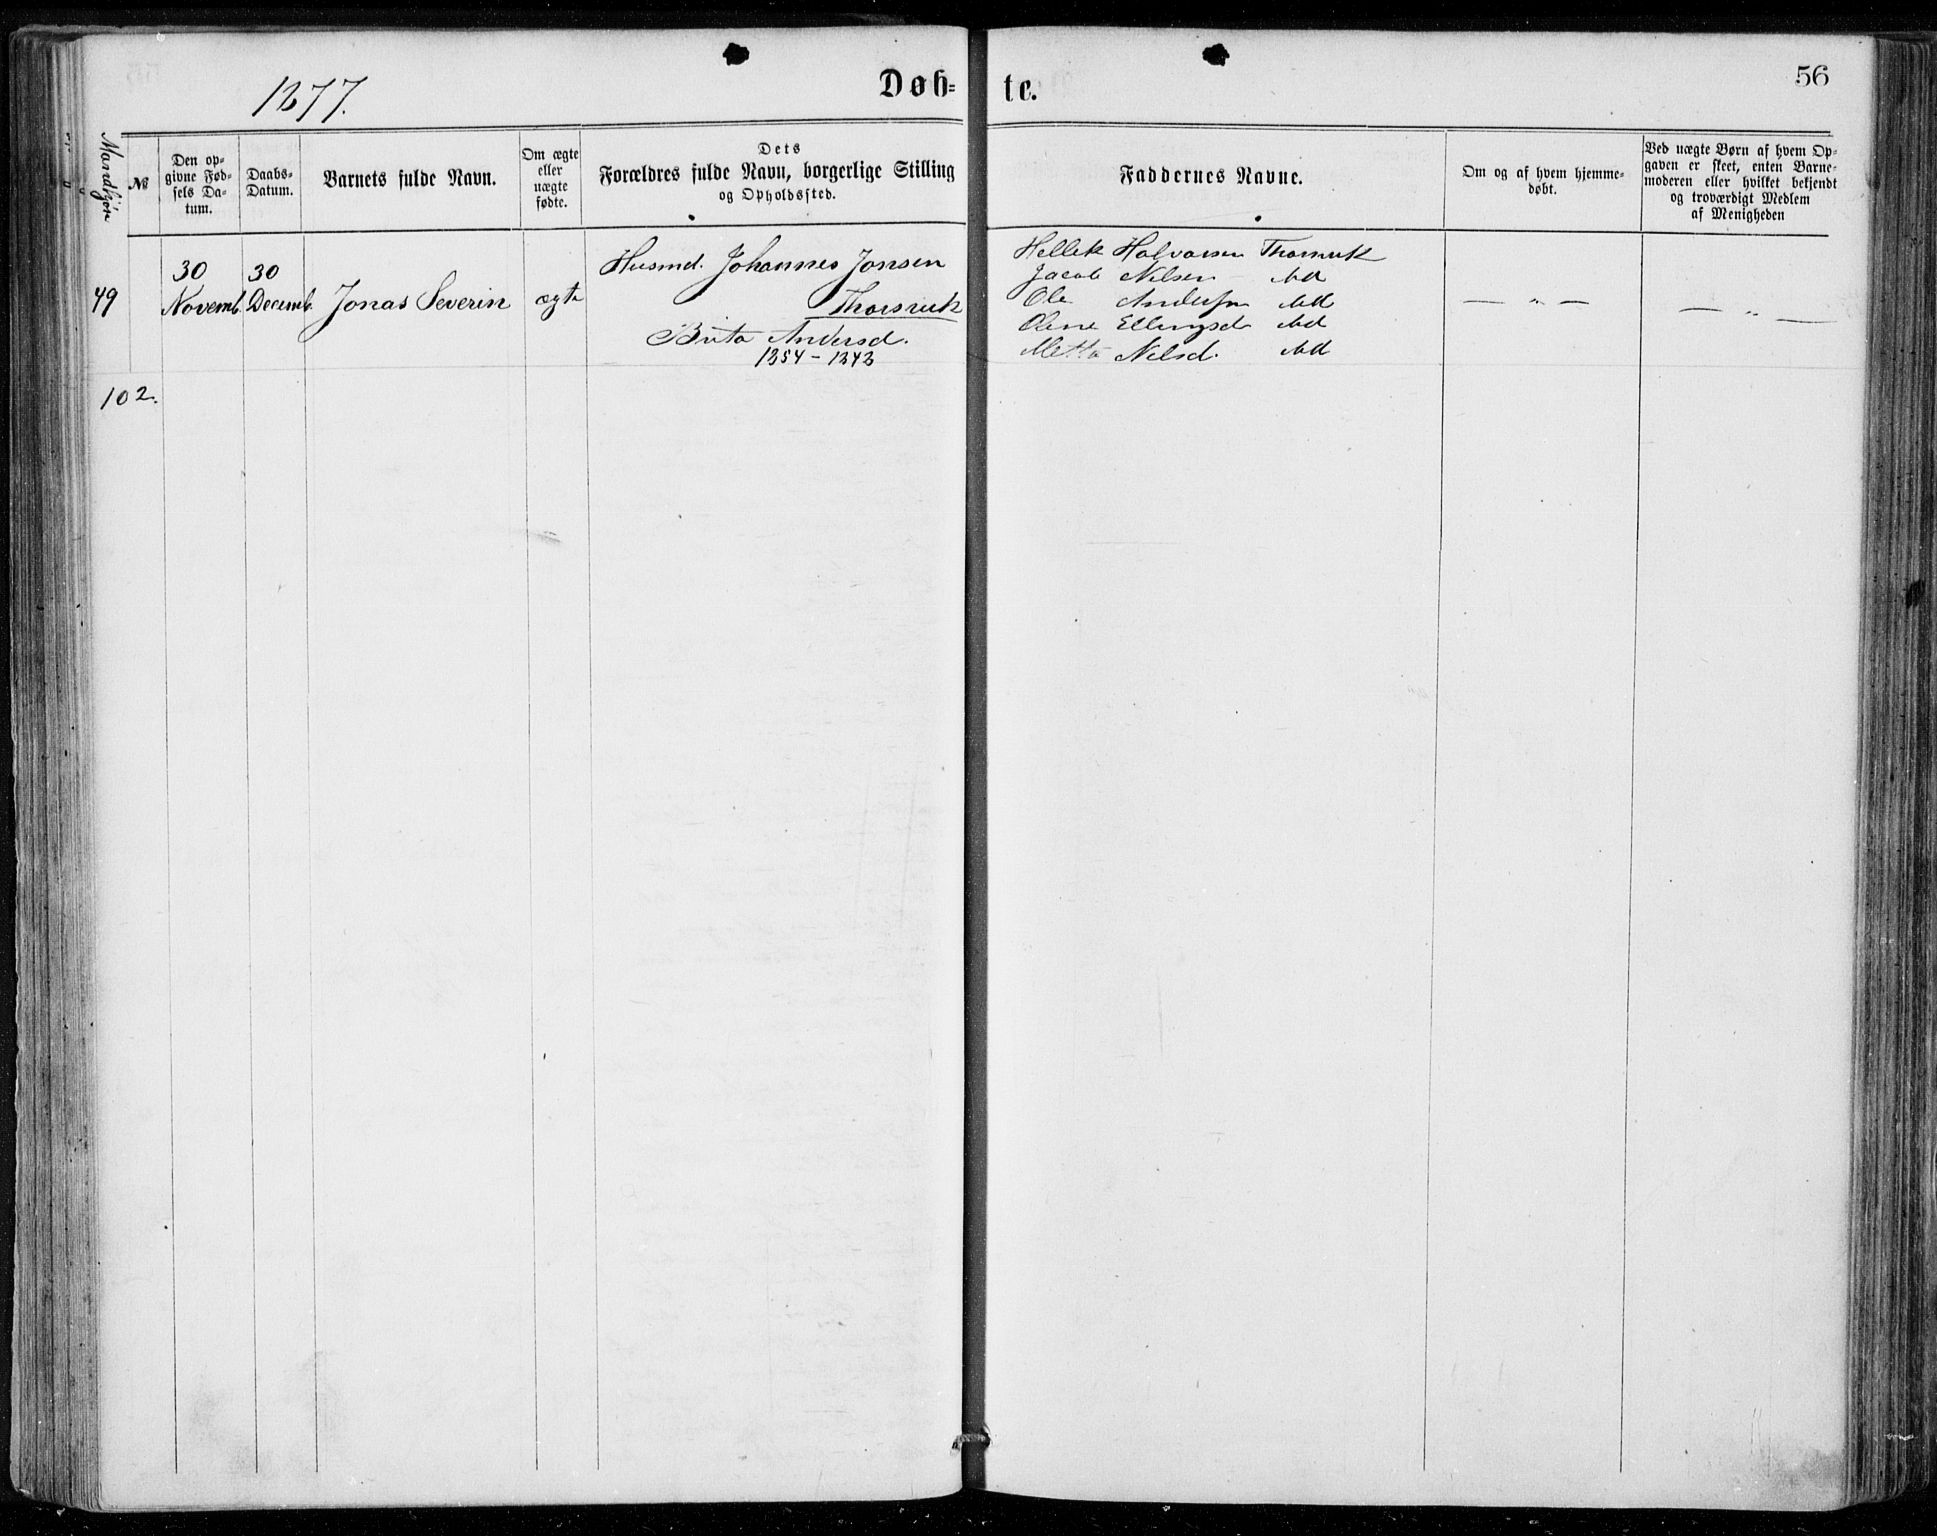 1877.
Døb=
te.
56
Mandkjøn
№
Den op=
givne Fød=
sels Da=
tum.
Daabs=
Datum.
Barnets fulde Navn.
Om ægte
eller
uægte
fødte.
Dets
Forældres fulde Navn, borgerlige Stilling
og Opholdssted.
Faddernes Navne.
Om og af hvem hjemme=
døbt.
Ved uægte Børn af hvem Op=
gaven er skeet, enten Barne=
moderen eller hvilket bekjendt
og troværdigt Medlem
af Menigheden
49
30
Novemb.
30
Decemb.
Jonas Severin
ægte
Husmd. Johannes Jonsen
Thorsvik
Brita Andersd.
1854 - 1843
Hellek Halvorsen Thorsvik
Jacob Nilsen ibd
Ole Andersen ibd
Oline Ellingsd ibd
Metta Nilsd. ibd
— „ —
— „ —
102.